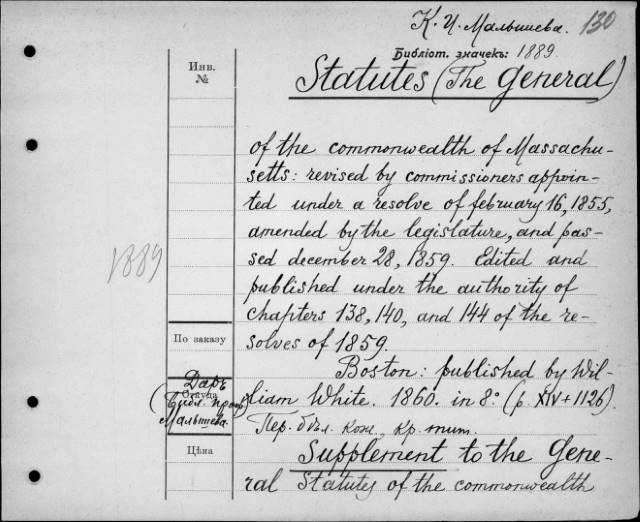 К. И. Малышева. 130
Библіот. значекъ: 1889.
Инв.
№
Statutes (The general)
of the commonwealth of Massachu-
setts: revised by commissioners appoin-
ted under a resolve of february 16, 1855,
amended by the legislature, and pas-
sed december 28, 1859. Edited and
published under the authority of
chapters 138, 140, and 144 of the re-
solves of 1859.
1889
По заказу
Boston: published by Wil-
liam White. 1860. in 8° (p. XIV + 1126).
Даръ
Откуда
Малышева.
Пер. бѣл. кож., кр. тит.
Цѣна
Supplement to the Gene-
ral Statutes of the commonwealth